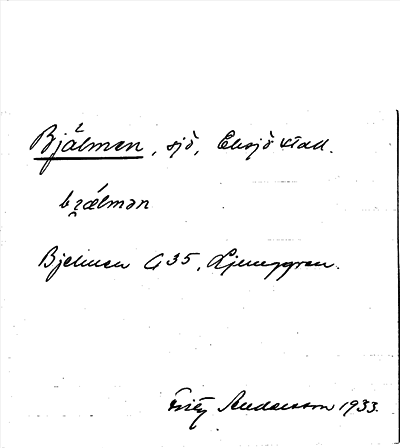 Bjälmen, sjö, Eksjö stad.
bi̯ǽlmən
Bjelmen G 35, Ljunggren.
Fritz Andersson 1933.